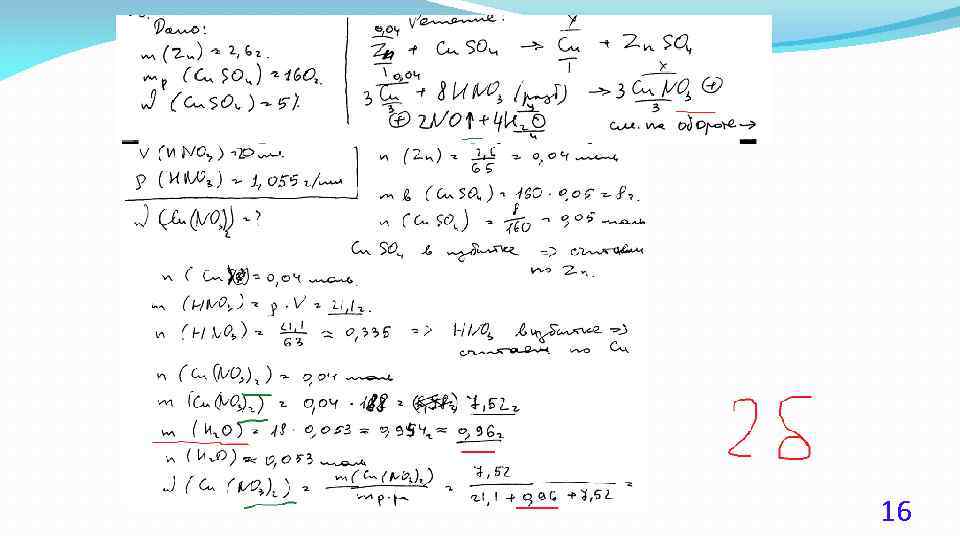 Дано:
m (Zn) = 2,6 г.
mр (CuSO4) = 160 г.
ω (CuSO4) = 5%
V (HNO3) = 20 мл.
ρ (HNO3) = 1,055 г/мл
ω (Cu(NO3)2) = ?
Решение:
0,04 x
Zn + CuSO4 → Cu + ZnSO4
1 1
0,04 x
3Cu + 8HNO3 (разб) → 3CuNO3 ⊕
3 3
y
⊕ 2NO↑ + 4H2O
4
см. на обороте →
n (Zn) = 2,6/65 = 0,04 моль
m в (CuSO4) = 160 · 0,05 = 8 г.
n (CuSO4) = 8/160 = 0,05 моль
CuSO4 в избытке => считаем
по Zn.
n (Cu) = 0,04 моль.
m (HNO3) = ρ · V = 21,1 г.
n (HNO3) = 21,1/63 ≈ 0,335 => HNO3 в избытке =>
считаем по Cu
n (Cu(NO3)2) = 0,04 моль
m (Cu(NO3)2) = 0,04 · 188 = 7,52 г
m (H2O) = 18 · 0,053 = 0,954 г ≈ 0,96 г
n (H2O) ≈ 0,053 моль
ω (Cu(NO3)2) = m(Cu(NO3)2)/mр-ра = 7,52/21,1 + 0,96 + 7,52 =
2б
16